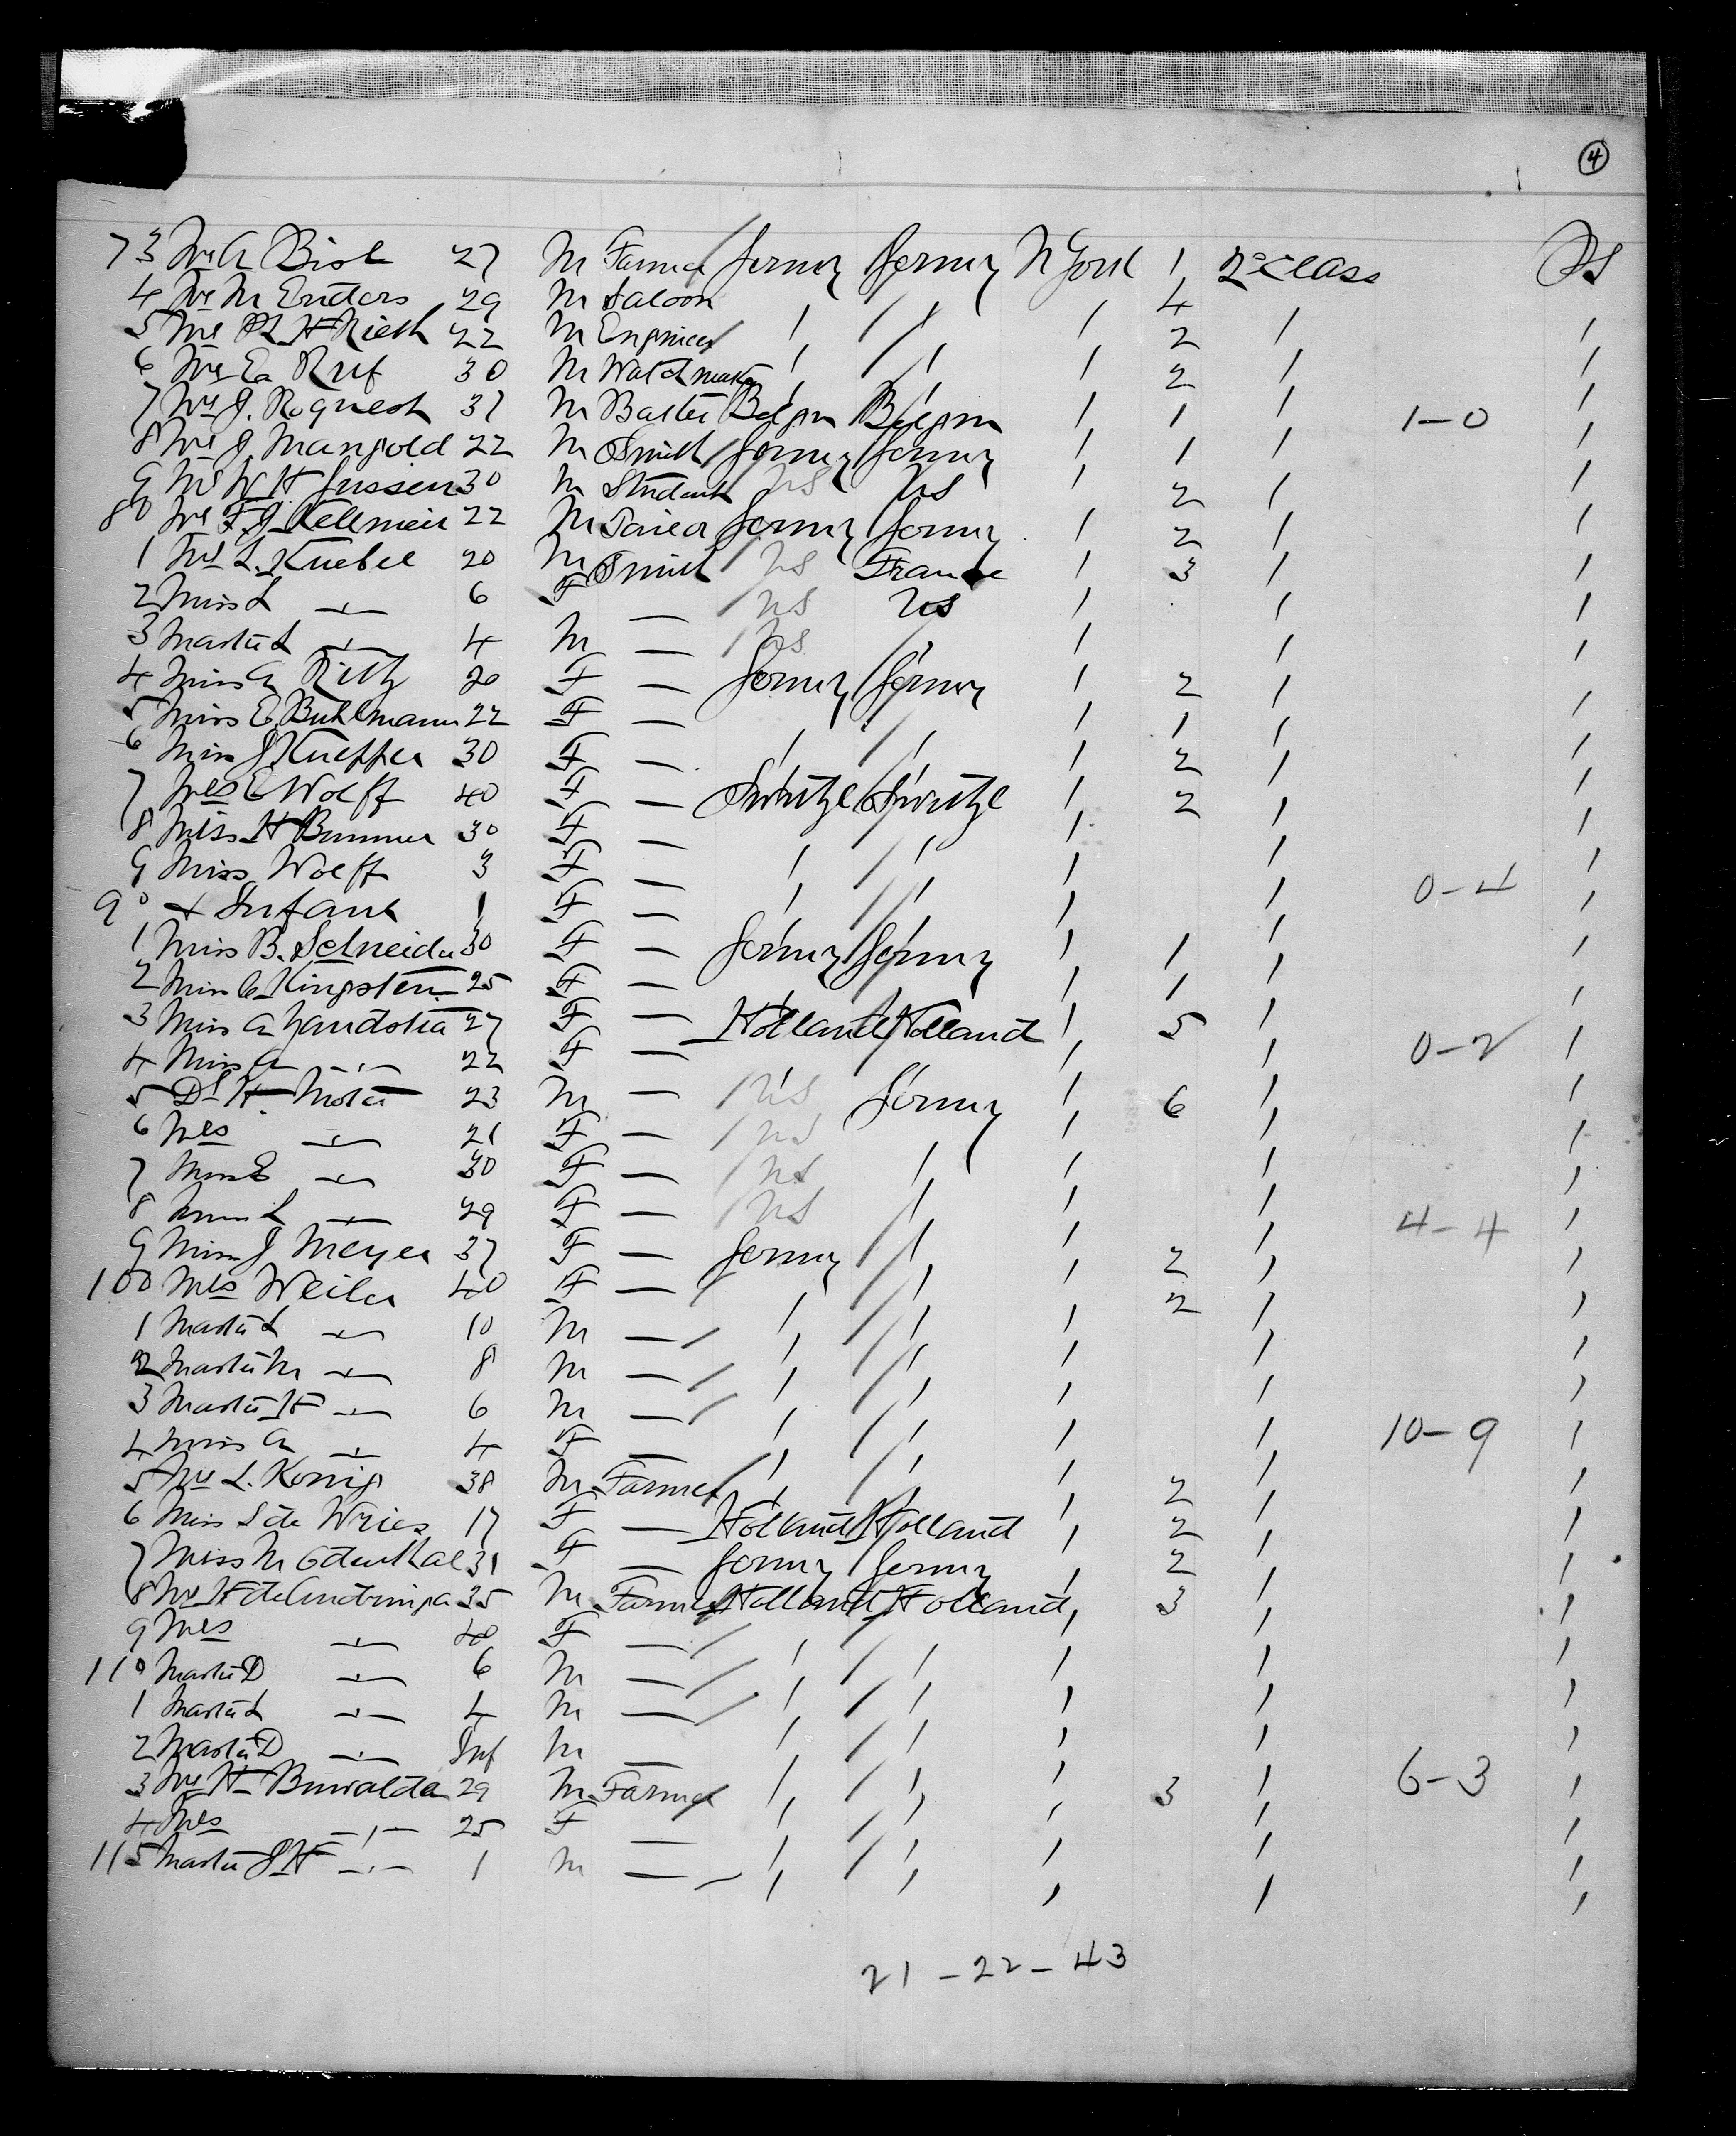 4
73 Mr A Bish 27 M Farmer Germy Germy N York 1 2d Class PS
4 Mr M Enders 29 M Saloon 4
5 Mr H Rieth 22 M Engineer 2
6 Mr E Ruf 30 M Watchmaker 2
7 Mr J. 37 M Belgm Belgm 1 1-0
8 Mr J. Mangold 22 M Smith Germy Germy 1
9 Mr W H Jussen 30 M Student US US 2
80 Mr F J Kellmeir 22 M Germy Germy 2
1 Mr L. Kuebel 20 M Smith US France 3
2 Miss L -"- 6 F — US US
3 Master L -"- 4 M — US
4 Miss A Rith 20 F — Germy Germy 2
5 Miss E Buhlmann 22 F — 1
6 Miss J Kueffer 30 F — 2
7 Mrs E Wolff 40 F — Switzl Switzl 2
8 Miss H Brunner 30 F —
9 Miss Wolff 3 F — 0-4
90 + Infant 1 F —
1 Miss B. Schneider 30 F — Germy Germy 1
2 Miss C Kingsten 25 F — 1
3 Miss A 27 F — Holland Holland 5 0-2
4 Miss A -"- 22 F —
5 Dr H. 23 M — US Germy 6
6 Mrs -"- 21 F — US
7 Miss E -"- 30 F — US
8 Miss L -"- 29 F — US 4-4
9 Miss J Meyer 37 F — Germy 2
100 Mrs Weiler 40 F — 2
1 Master L -"- 10 M —
2 Master M -"- 8 M —
3 Master H -"- 6 M — 10-9
4 Miss A -"- 4 F —
5 Mr L. Konig 38 M Farmer 2
6 Miss S de Wries 17 F — Holland Holland 2
7 Miss M Odenthal 31 F — Germy Germy 2
8 Mr H 35 M Farmer Holland Holland 3
9 Mrs -"- 40 F —
110 Master D -"- 6 M —
1 Master L -"- 4 M —
2 Master D -"- Inf M —
3 Mr H Buwalda 29 M Farmer 3 6-3
4 Mrs -"- 25 F —
115 Master J H -"- 1 M —
21 - 22 - 43